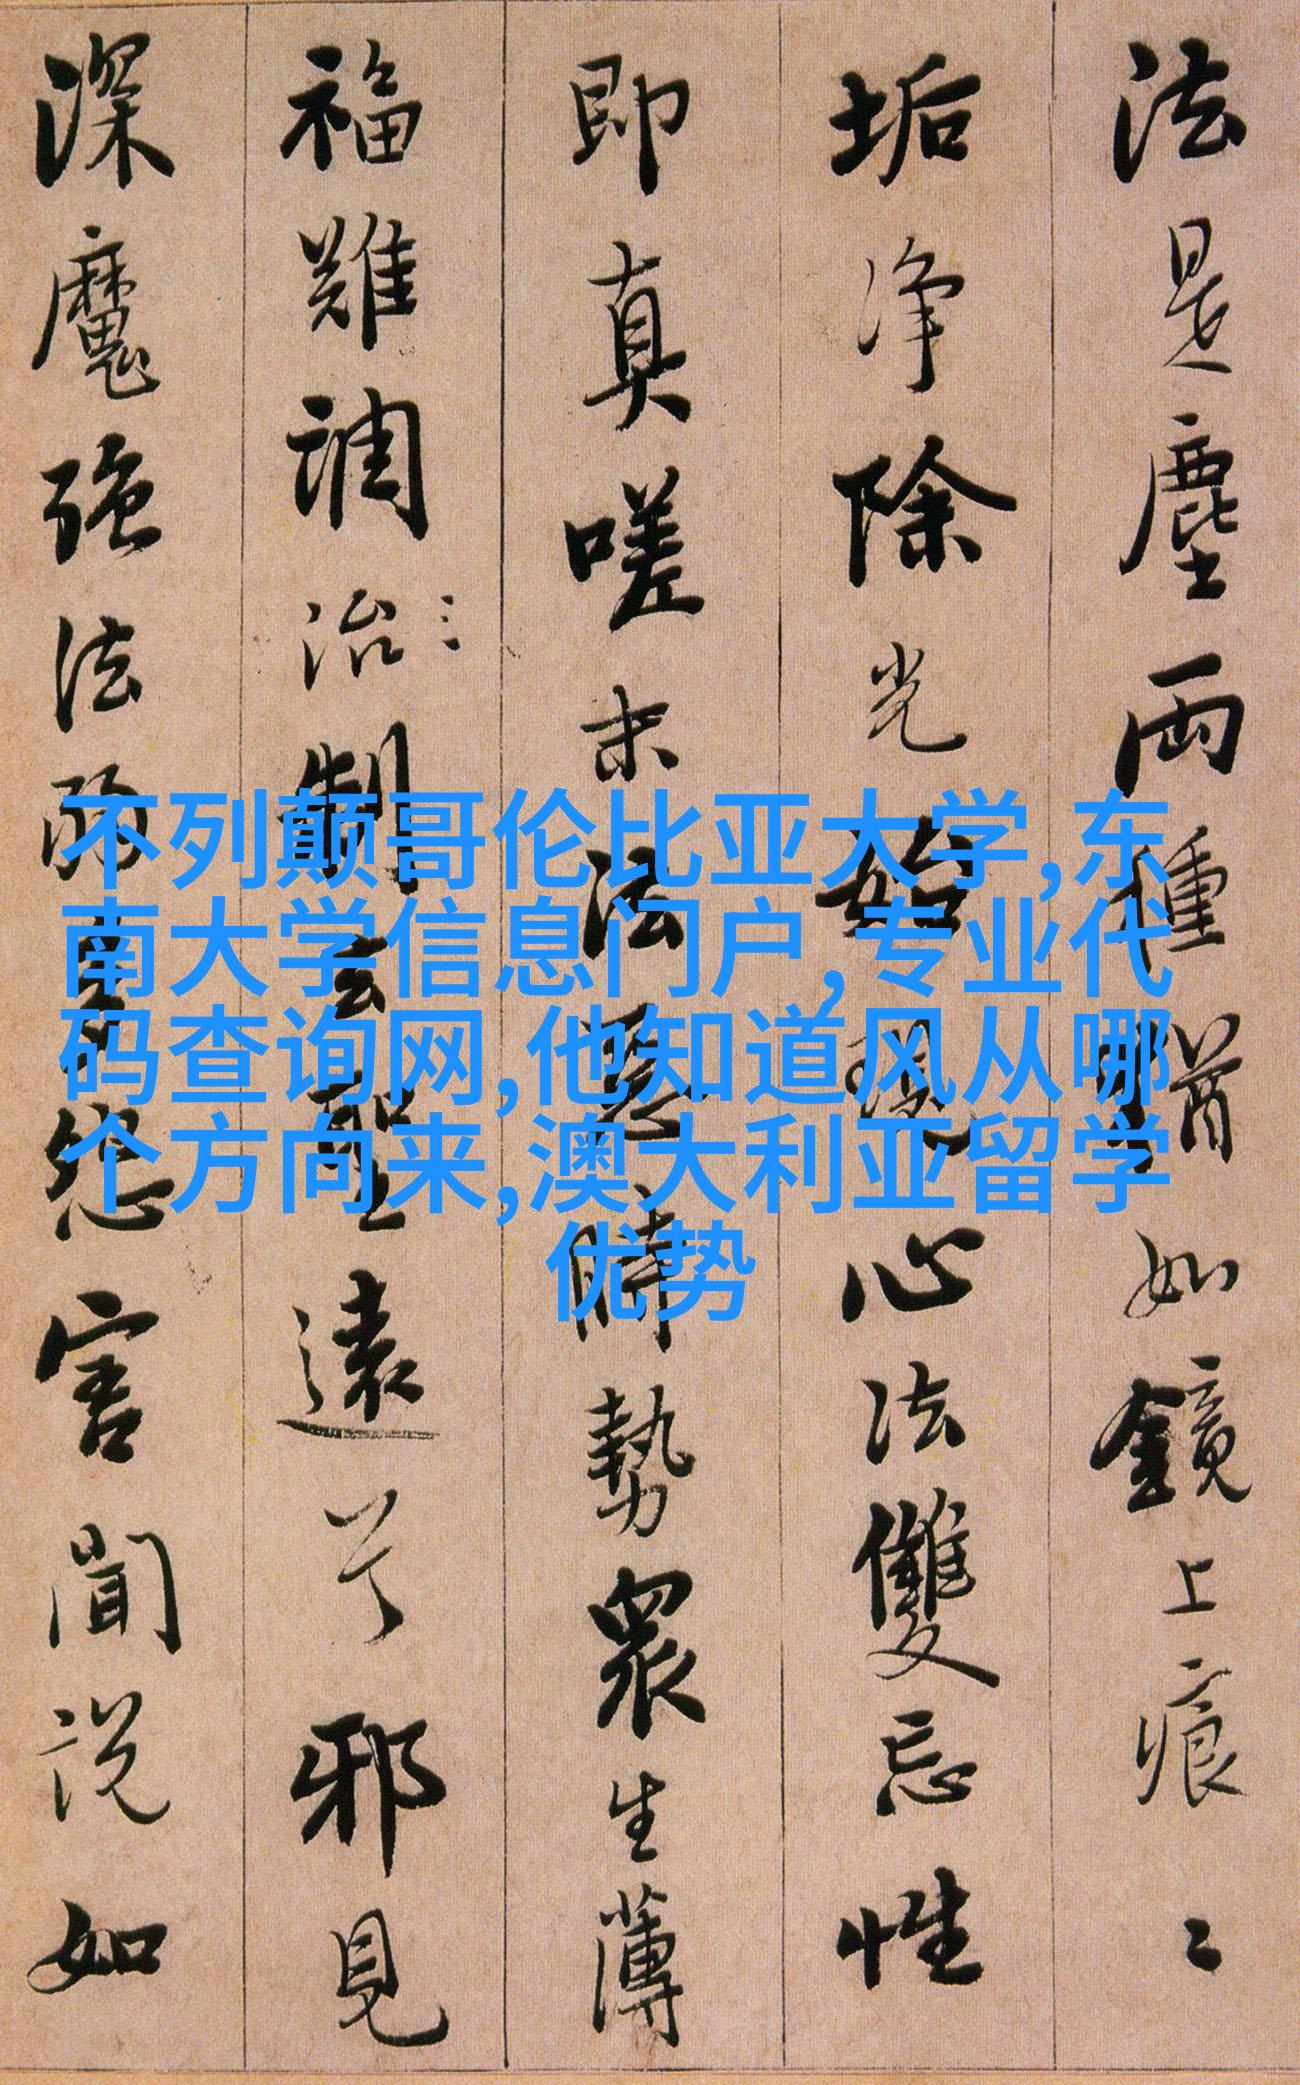 法是塵兩種猶如鏡上痕〻
垢净除光始現心法雙忘性
即真嗟末法惡時勢眾生薄
福難調治制去聖遠兮邪見
深魔強法弱怨害聞說如
不列颠哥伦比亚大学,东
南大学信息门户,专业代
码查询网,他知道风从哪
个方向来,澳大利亚留学
优势